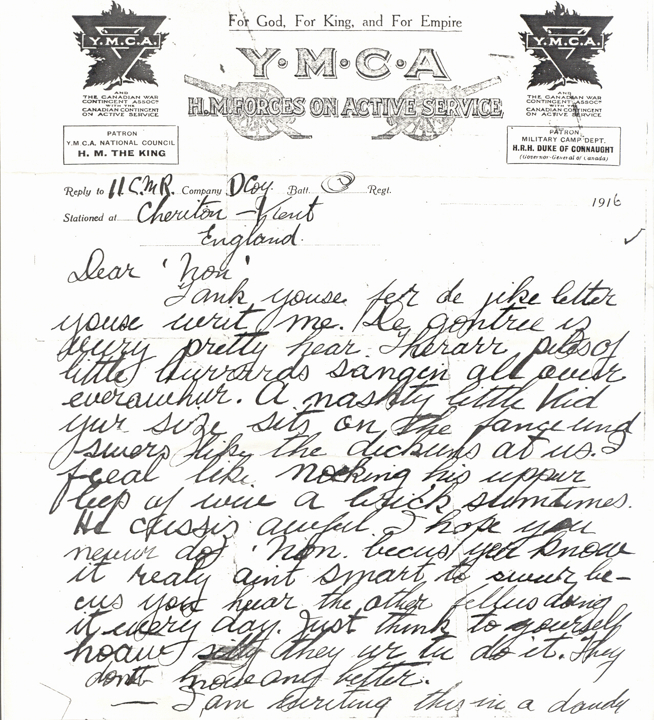 For God, For King, and For Empire
Y.M.C.A.
Y·M·C·A
Y.M.C.A.
H.M FORCES ON ACTIVE SERVICE
AND
THE CANADIAN WAR
CONTINGENT ASSOCN
WITH THE
CANADIAN CONTINGENT
ON ACTIVE SERVICE
AND
THE CANADIAN WAR
CONTINGENT ASSOCN
WITH THE
CANADIAN CONTINGENT
ON ACTIVE SERVICE
PATRON
Y.M.C.A. NATIONAL COUNCIL
H. M. THE KING
PATRON
MILITARY CAMP DEPT.
H.R.H. DUKE OF CONNAUGHT
(Governor-General of Canada)
Reply to 11 C.M.R. Company D Coy. Batt. Regt.
1916
Stationed at Cheriton - Kent
England
Dear 'Non'
Tank youse fer de nike letter
youse writ me. De contree is
very pretty hear. Therarr piles of
little burrords sangen all over
everawhur. A nashty little kid
yur size sits on the fance und
swers like the dickuns at us. I
feeal like nocking his uppur
leep of wiw a brick sumtimes.
He cussiz awful. I hope you
nevur do, 'Non. becus yer know
it realy aint smart to swur be-
cus you hear the other fellus doing
it every day. Just think to yourself
hoaw silly they ur tu do it. They
dont know any better.
— I am writing this in a dandy